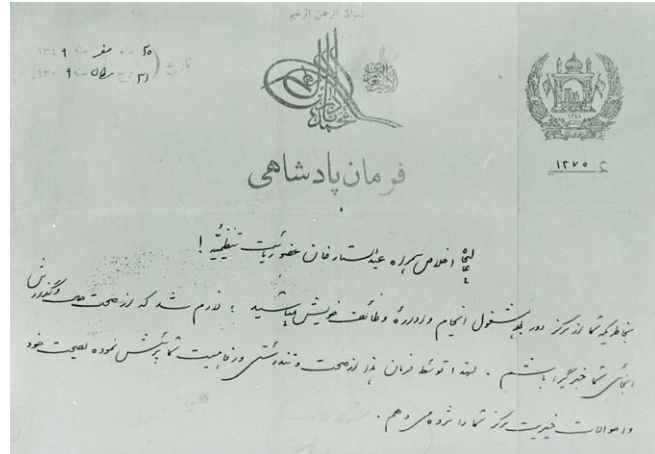 بسم الله الرحمن الرحیم
۲۵ ماه صفر سنه ۱۳۴۹
تاریخ
۳۱ برج سرطان سنه ۱۳۰۹
۱۲۷۵
فرمان پادشاهی
عالیجاه اخلاص همراه عبدالستار خان عضو ریاست تنظیمیه !
بخاطریکه شما از مرکز دور بوده مشغول انجام و اداره وظائف خویش میباشید ؛ لازم شد که از صحت و گذارش
آنجائی شما خبرگیرا باشم . لهذا توسط فرمان هذا از صحت و تندرستی و رفاهیت شما پرسش نموده بصحت خود
و احوالات خیریت مرکز شما را مژده می دهم .